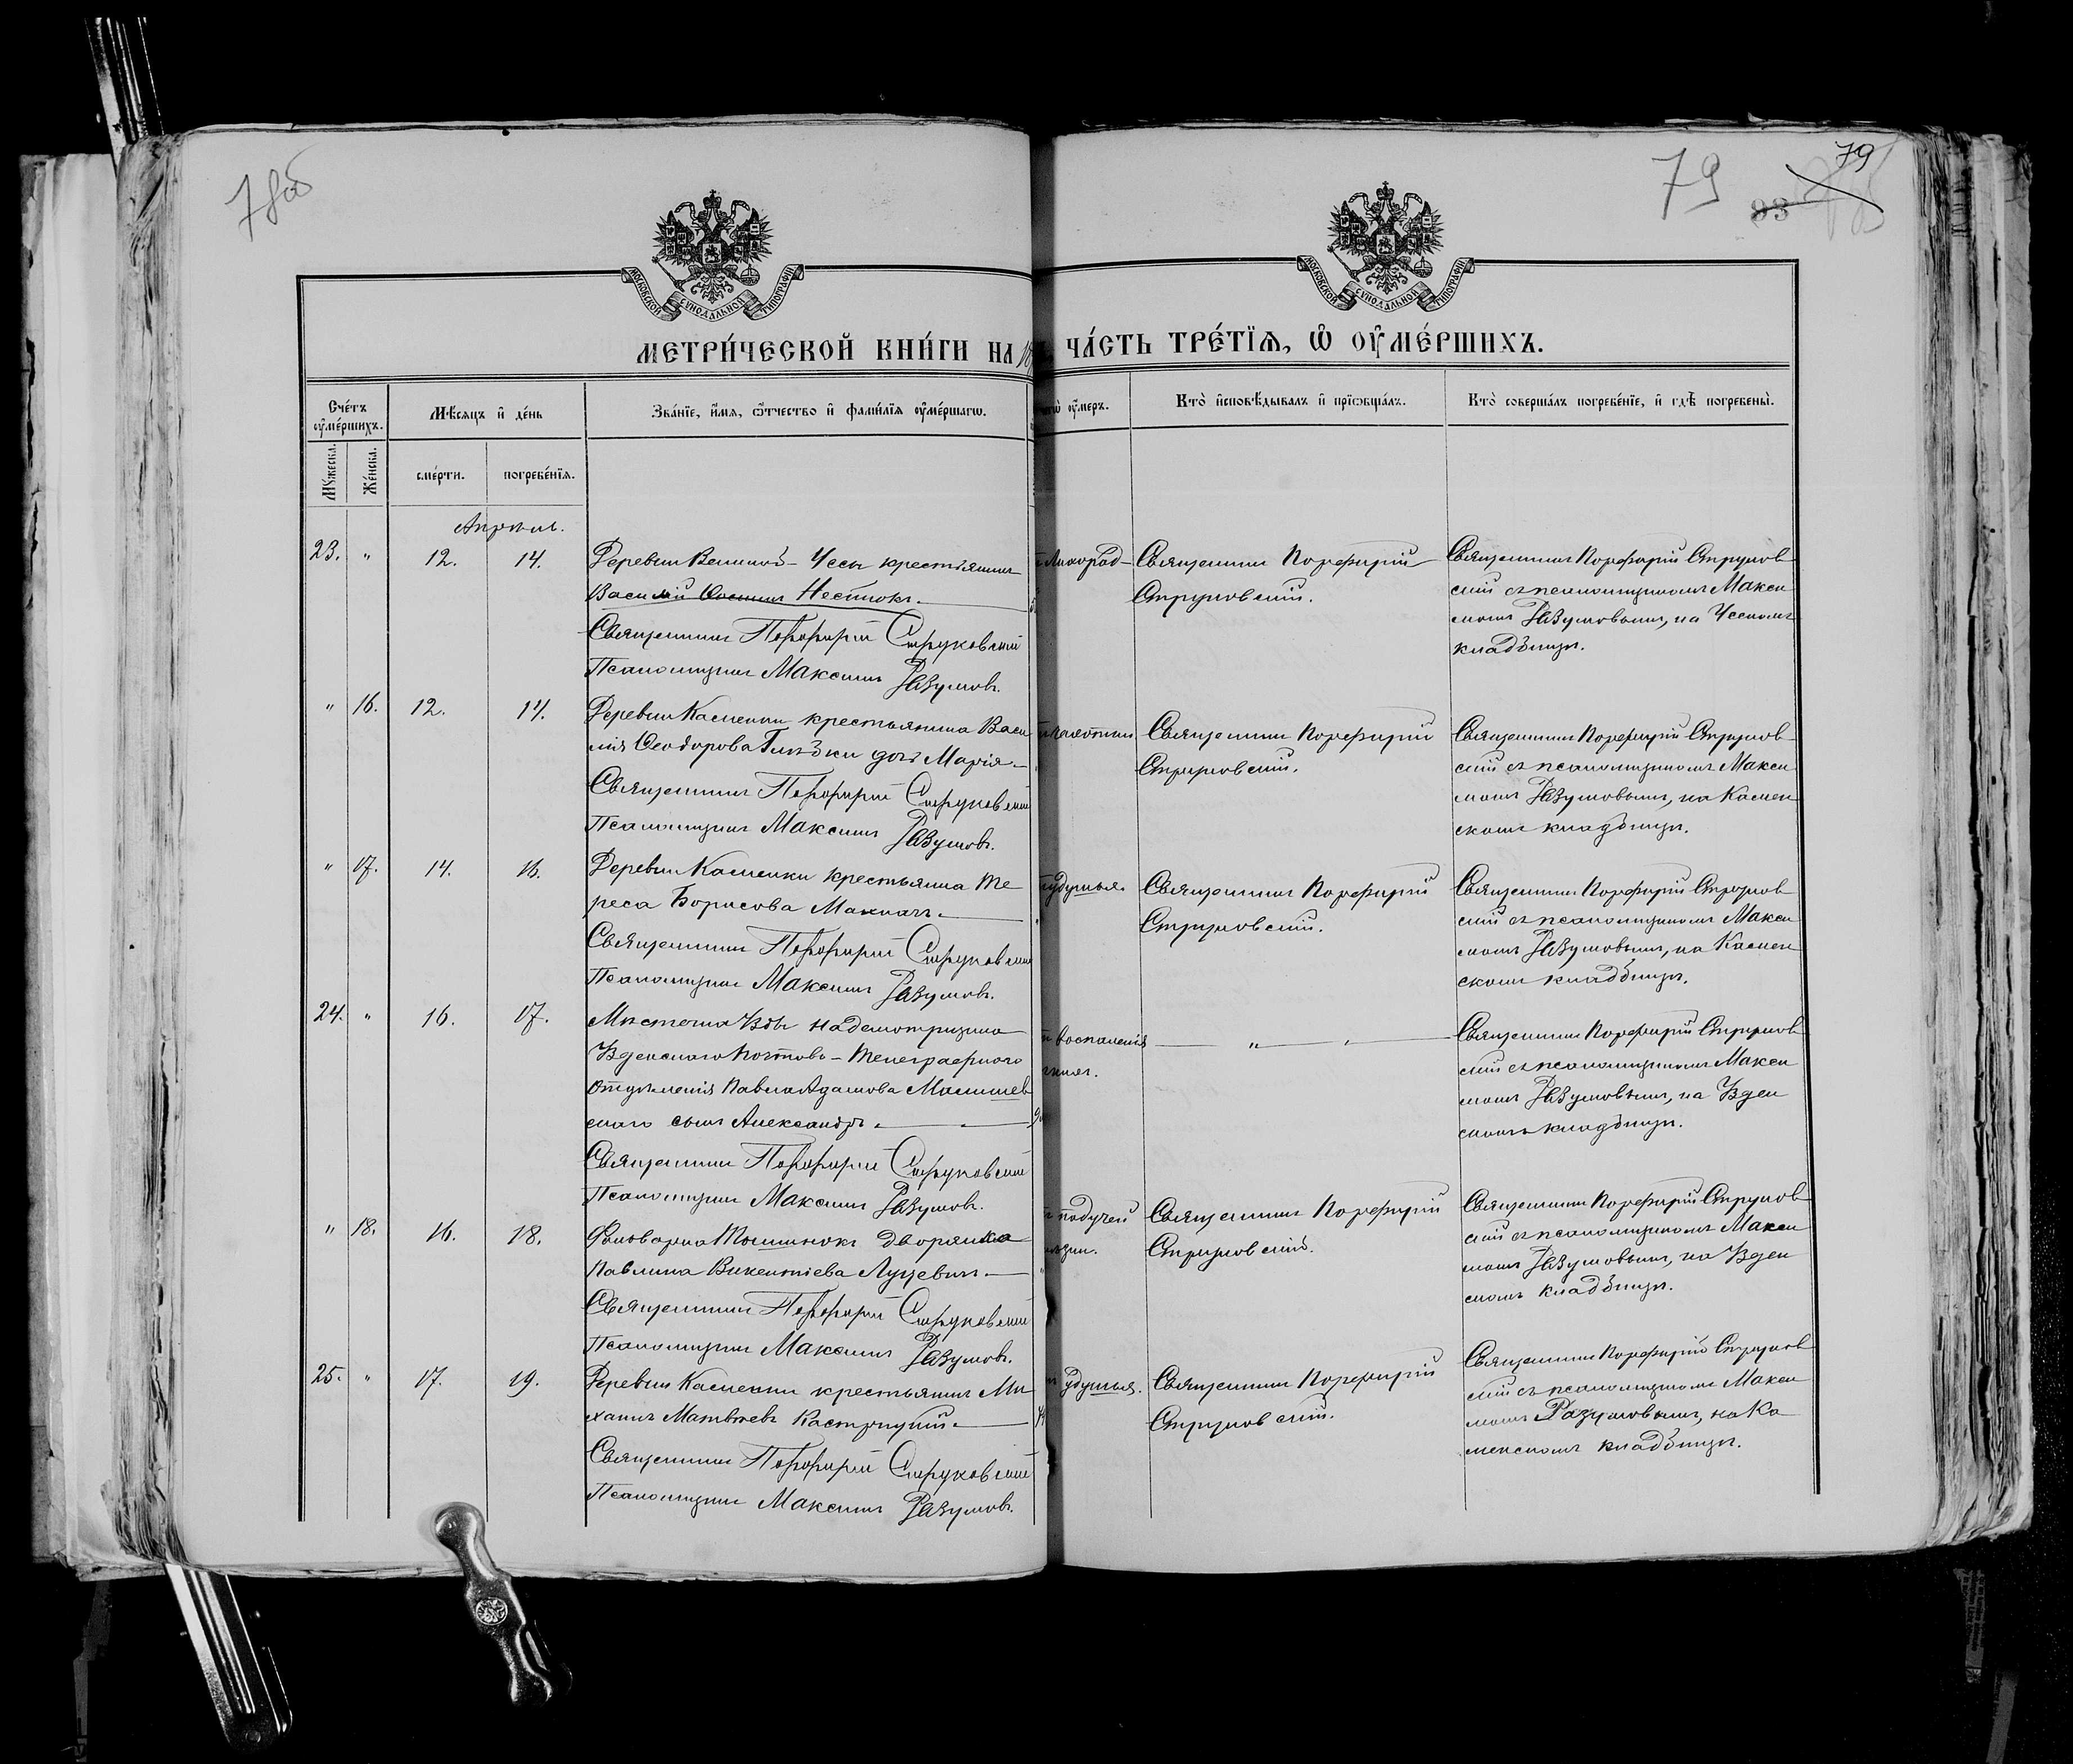 78об
79
79
93
МОСКОВСКОЙ СѴНОДАЛЬНОЙ ТИПОГРАФІИ
МОСКОВСКОЙ СѴНОДАЛЬНОЙ ТИПОГРАФІИ
МЕТРИ́ЧЕСКОЙ КНИ́ГИ НА 18
ЧА́СТЬ ТРЕ́ТЇѦ, Ѡ҆ ОУ҆МЕ́РШИХЪ.
Сче́тъ оу҆ме́ршихъ.
Мѣсѧцъ и҆ де́нь
Зва́нїе, и҆́мѧ, ѻ҆́тчество и҆ фами́лїѧ оу҆ме́ршагѡ.
чегѡ̀ оу҆́меръ.
Кто̀ и҆сповѣ́дывалъ и҆ прїѡбща́лъ.
Кто̀ соверша́лъ погребе́нїе, и҆ гдѣ̀ погребены̀.
Мꙋ́жеска.
Же́нска.
сме́рти.
погребе́нїѧ.
Апрѣль.
23. " 12. 14.
Деревни Великой-Чесы крестьянинъ
Василій Осипов Нестюкъ.
Священникъ Порфирій Струковскій
Псаломщикъ Максимъ Разумовъ.
Лихорад-
Священникъ Порфирій
Струковскій.
Священникъ Порфирій Струков
скій съ псаломщикомъ Макси
момъ Разумовымъ, на Ческомъ
кладбищѣ.
" 16. 12. 14.
Деревни Каменки крестьянина Васи
лія Ѳеодорова дочь Марія.
Священникъ Порфирій Струковскій
Псаломщикъ Максимъ Разумовъ.
Священникъ Порфирій
Струковскій.
Священникъ Порфирій Струков
скій съ псаломщикомъ Макси
момъ Разумовымъ, на Камен
скомъ кладбищѣ.
" 17. 14. 16.
Деревни Каменки крестьянка Те
реса Борисова
Священникъ Порфирій Струковскій
Псаломщикъ Максимъ Разумовъ.
удушья.
Священникъ Порфирій
Струковскій.
Священникъ Порфирій Струков
скій съ псаломщикомъ Макси
момъ Разумовымъ, на Камен
скомъ кладбищѣ.
24. " 16. 17.
Мѣстечка Узды надсмотрщика
Узденскаго Почтово-Телеграфнаго
отдѣленія Павла Адамова Малишев
скаго сынъ Александръ.
Священникъ Порфирій Струковскій
Псаломщикъ Максимъ Разумовъ.
воспаленія
"
Священникъ Порфирій Струков
скій съ псаломщикомъ Макси
момъ Разумовымъ, на Узден
скомъ кладбищѣ.
" 18. 16. 18.
Фольварка дворянка
Павлина Викентіева Луцевичъ.
Священникъ Порфирій Струковскій
Псаломщикъ Максимъ Разумовъ.
падучей
Священникъ Порфирій
Струковскій.
Священникъ Порфирій Струков
скій съ псаломщикомъ Макси
момъ Разумовымъ, на Узден
скомъ кладбищѣ.
25. " 17. 19.
Деревни Каменки крестьянинъ Ми
хаилъ Матвѣевъ Кастрицкій.
Священникъ Порфирій Струковскій
Псаломщикъ Максимъ Разумовъ.
удушья.
Священникъ Порфирій
Струковскій.
Священникъ Порфирій Струков
скій съ псаломщикомъ Макси
момъ Разумовымъ, на Ка
менскомъ кладбищѣ.